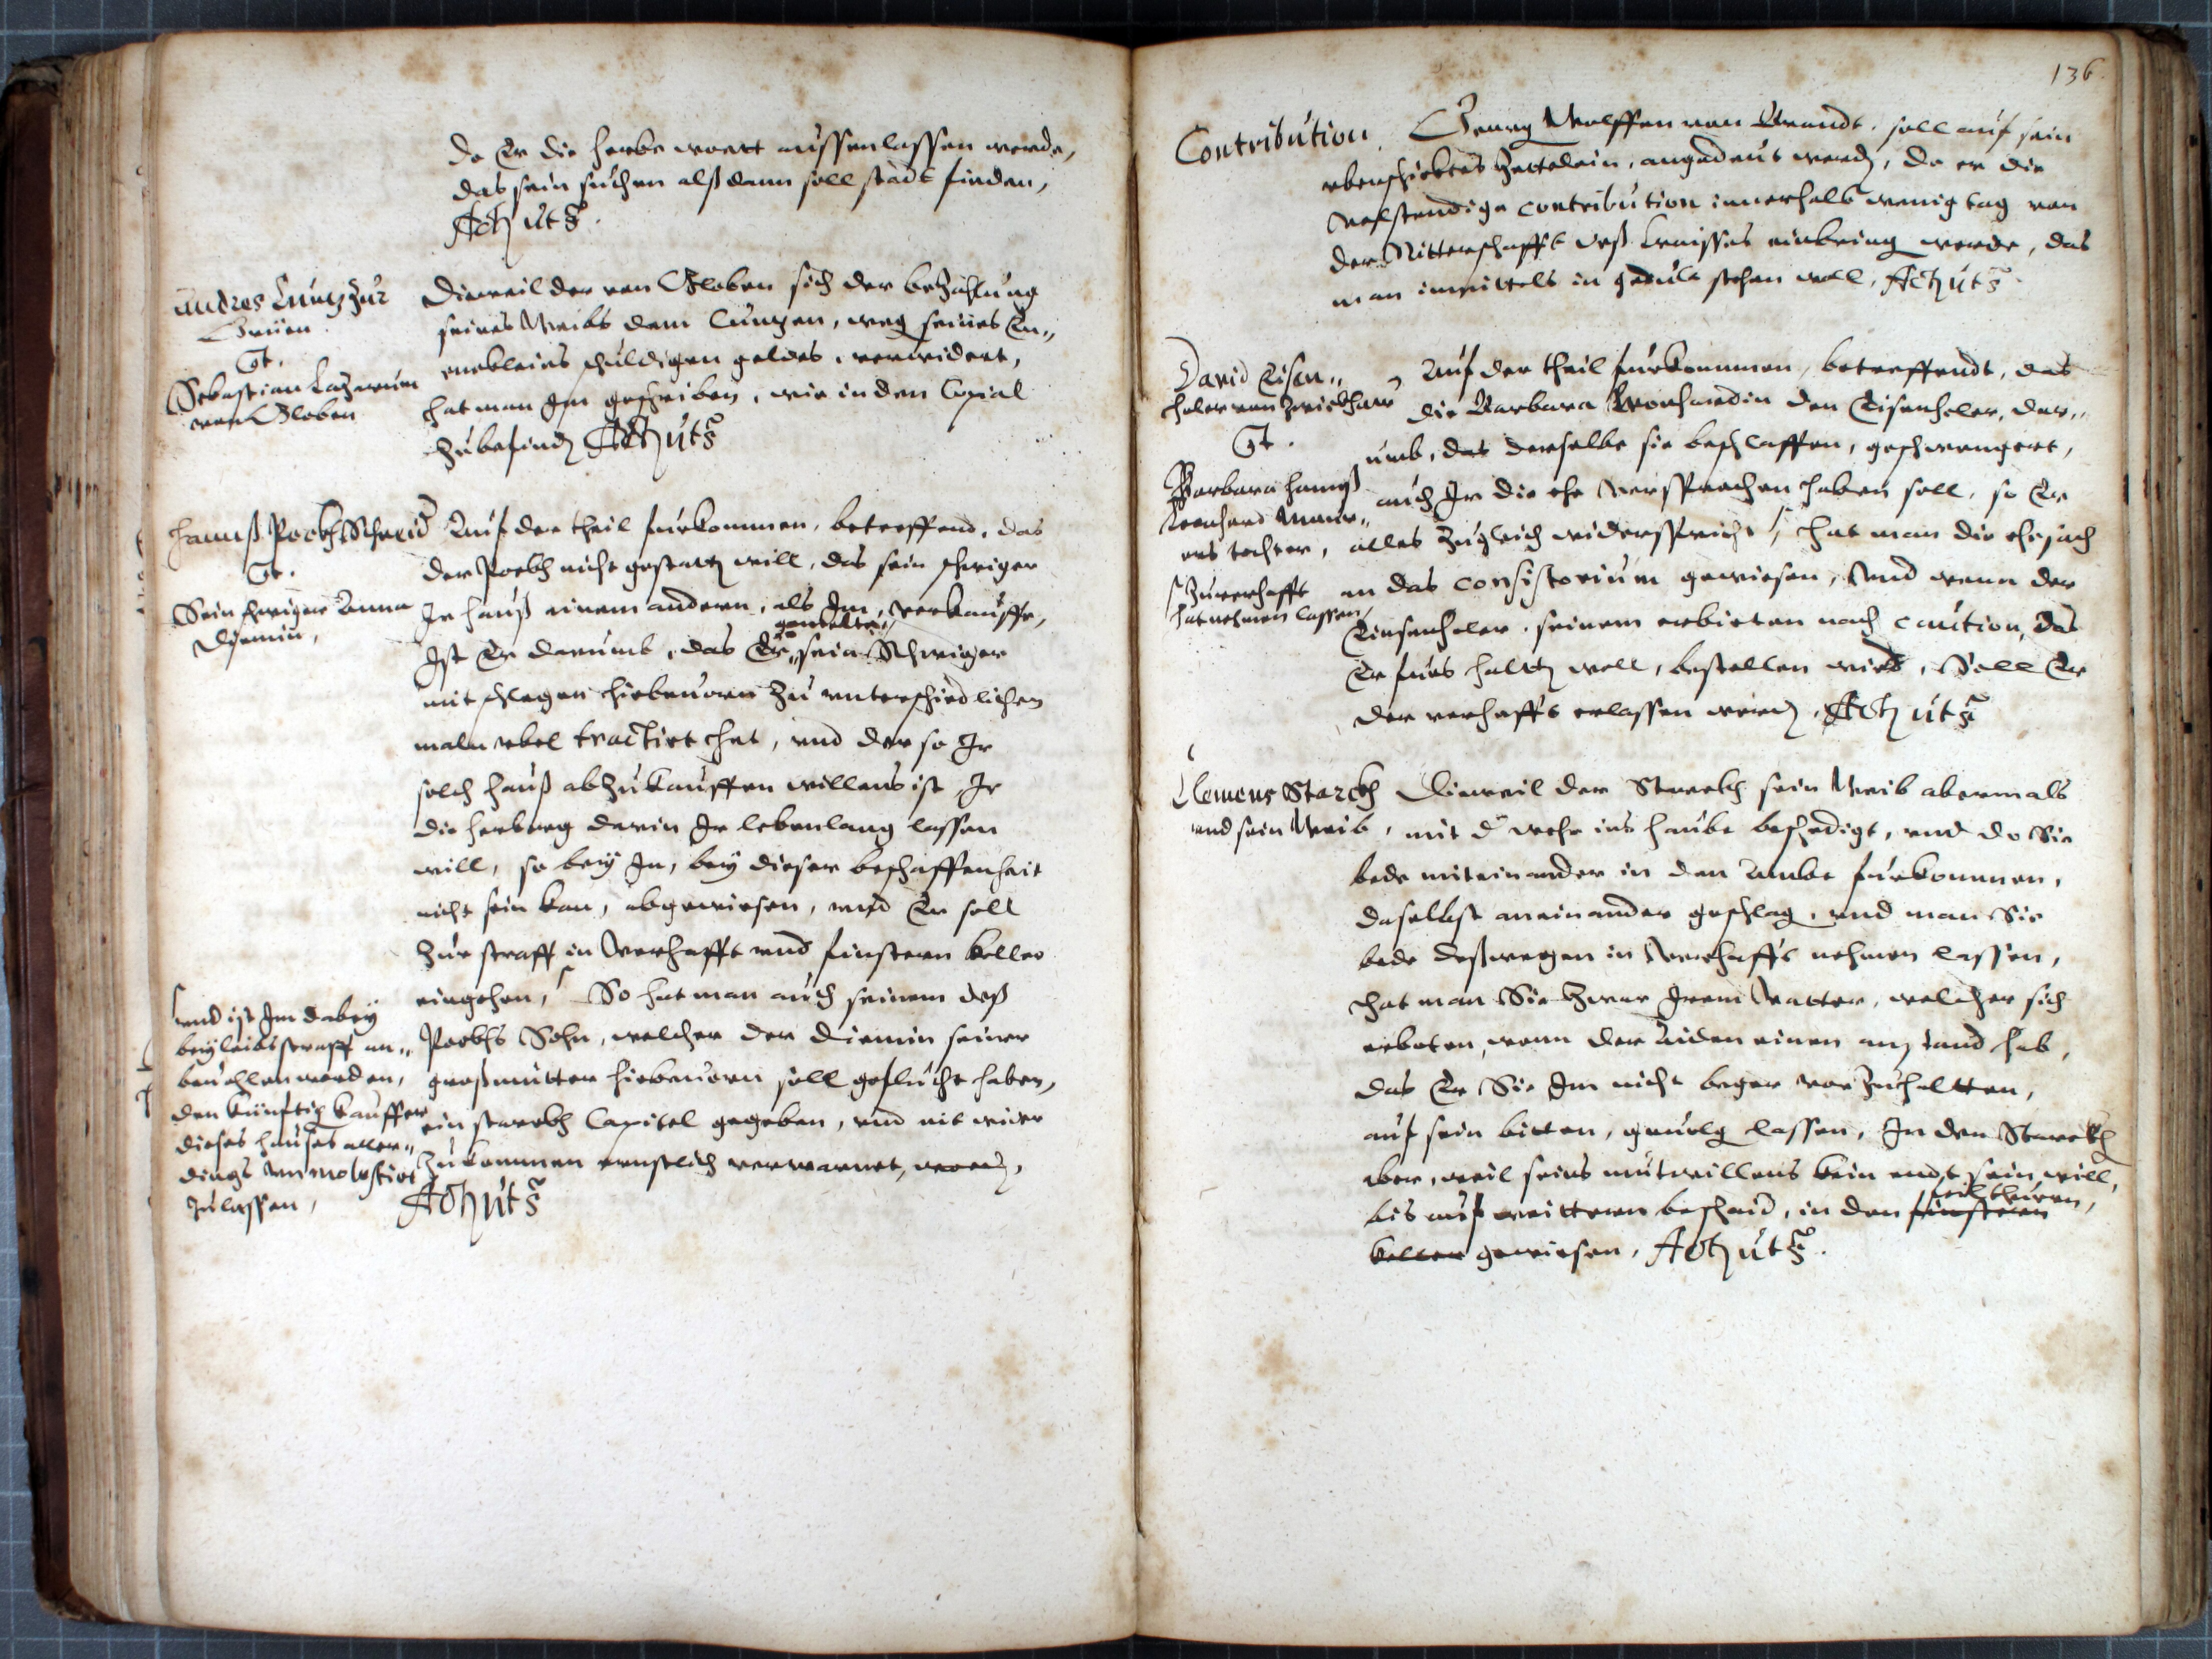 da Er die herbe wortt aussenlassen werde,
das sein suchen alß dann soll stadt finden,
Act. ut s.
Andres Cuntz zur
Grüen.
Ct.
Sebastian
von Globen
Dieweil der von Globen sich der bezahlung
seines Weibs dem Cuntzen, weg seines En„
enckleins schuldigen geldes, verwidert,
hat man Im geschriben, wie in den Copial
zubefinden Act. ut s.
Hannß Pockh Schneid
Ct.
Sein schwiger Anna
Diemin,
Auf der theil fürkommen, betreffend, das
der Pockh nicht gestatten will, das sein schwiger
Ir hauß einem andern, als Im, verkauffe,
gewalttig
Ist Er darumb, das Er sein Schwiger
mit schlegen hiebevorn zu unterschiedlichen
maln ubel tractirt hat, und der so Ir
solch hauß abzukauffen willens ist, Ir
die herberg darin Ir lebenlang lassen
will, so bey Im, bey dieser beschaffenheit
nicht sein kan, abgewiesen, und Er soll
zur straff in Verhafft und finstern keller
eingehen, So hat man auch seinem deß
Pockhs Sohn, welcher der Diemin seiner
großmutter hiebevorn soll geflucht haben,
ein starckh Capitel gegeben, und nit wider
zukommen ernstlich verwarnet,
Act. ut s.
und ist Im dabey
bey leibsstraff an„
bevohlen worden,
den künftig kauffer
dieses hauses aller„
dings unmolestirt
zulassen,
136.
Contribution.
Georg Wolffen von Brandt, soll auf sein
uberschicktes Zettelein, angedeut werden, da er die
volstendige contribution innerhalb wenig tag von
der Ritterschafft deß Craisses einbring werde, das
man inmittels in gedult stehen woll, Act. ut s.
David Eisen„
heler von Zwickhaw
Ct.
Barbara Hannß
Leonhard Maur„
ers tochter,
zuverhafft
hat nehmen lassen
Auf der theil fürkommen, betreffendt, das
die Barbara den Eisenheler, dar„
umb, das derselbe sie beschlaffen, geschwengert,
auch Ir die ehe versprochen haben soll, so Er
alles zugleich widerspricht, hat man die ehesach
an das Consistorium gewiesen, und wenn der
Eisenheler, seinem erbieten nach caution, das
Er fuß haltten woll, bestellen wird, Soll Er
der verhafft erlassen werden, Act. ut s.
Clemens Starckh
und sein Weib,
Dieweil der Starckh sein Weib abermals
mit d wehr ins haubt beschedigt, und do Sie
bede miteinander in den Ambt fürkommen,
daselbst aneinander geschlag, und man Sie
bede deßwegen in Verhafft nehmen lassen,
hat man Sie zwar Irem Vatter, welcher sich
erboten, wenn der Aiden einen anstand hab,
das Er Sie Im nicht beger vorzuhaltten,
auf sein bitten, gevolg lassen, In den Starckh
aber, weil seins mutwillens kein endt sein will,
bis auf weittern beschaid, in den finstern
keller gewiesen, Act. ut s.